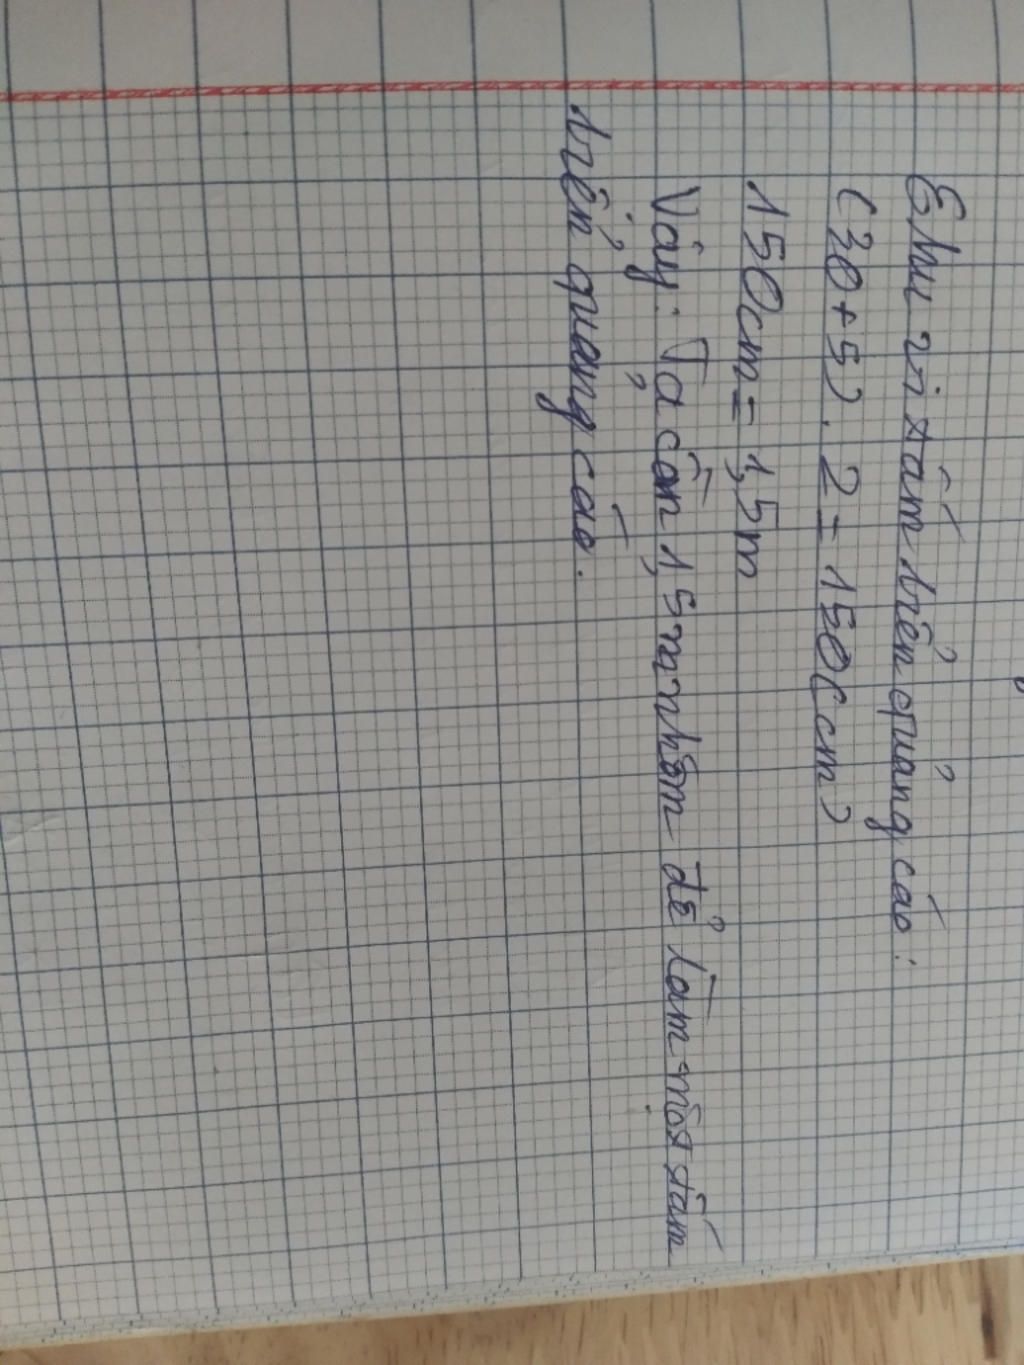 Chu vi tấm biển quảng cáo:
(30+5). 2 = 150(cm)
150cm = 1,5m
Vậy: Ta cần 1,5m nhôm để làm một tấm
biển quảng cáo.